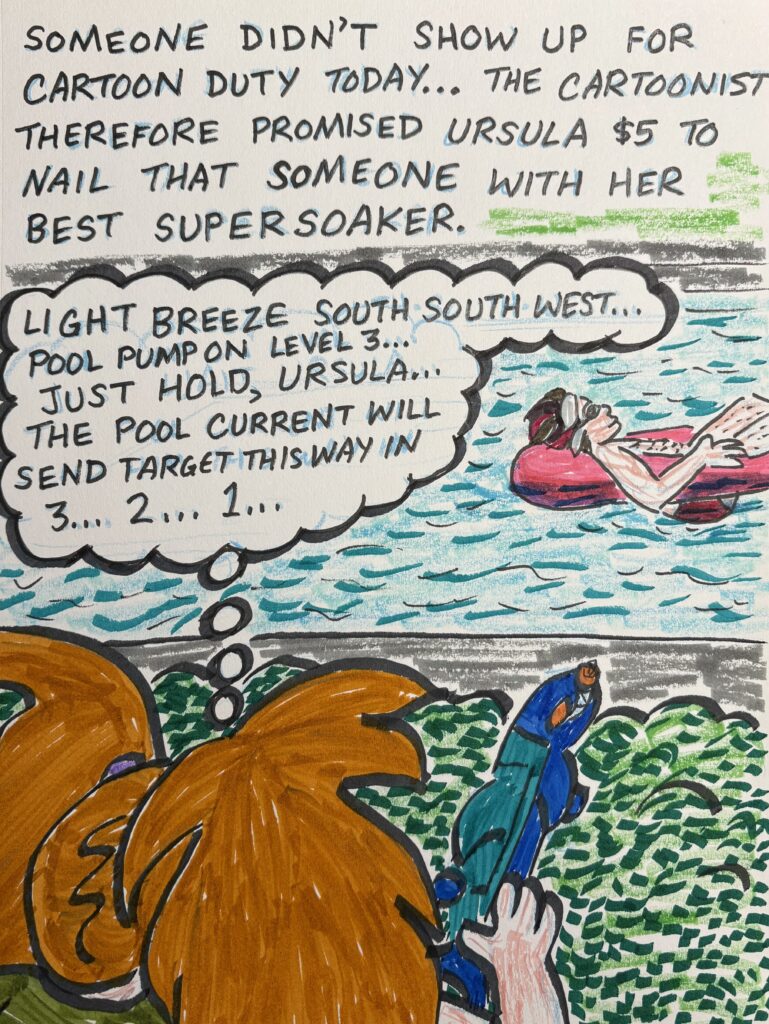 SOMEONE DIDN'T SHOW UP FOR
CARTOON DUTY TODAY... THE CARTOONIST
THEREFORE PROMISED URSULA $5 TO
NAIL THAT SOMEONE WITH HER
BEST SUPER SOAKER.
LIGHT BREEZE SOUTH SOUTH WEST...
POOL PUMP ON LEVEL 3...
JUST HOLD, URSULA...
THE POOL CURRENT WILL
SEND TARGET THIS WAY IN
3... 2... 1...